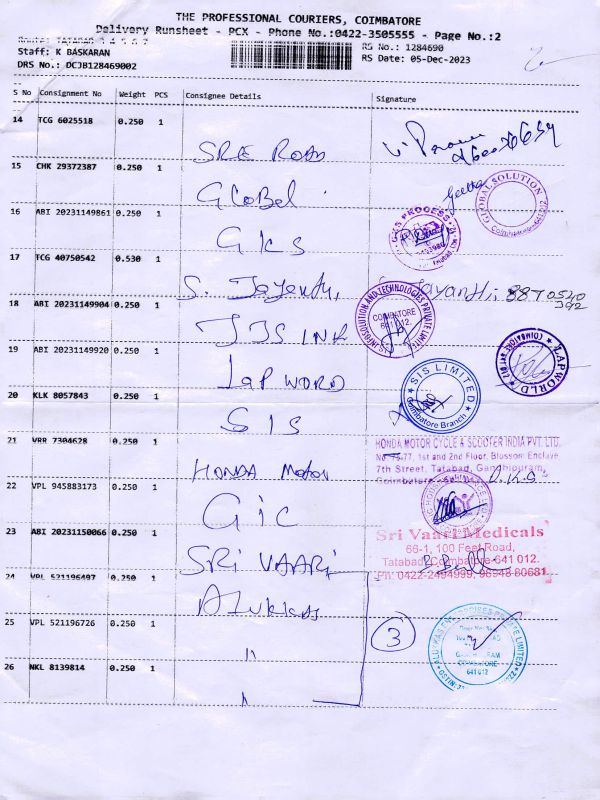 THE PROFESSIONAL COURIERS, COIMBATORE
Delivery Runsheet - PCX - Phone No.:0422-3505555 - Page No.:2
Staff: K BASKARAN
RS No.: 1284690
DRS No.: DCJB128469002
RS Date: 05-Dec-2023
S No Consignment No Weight PCS Consignee Details Signature
14 TCG 6025518 0.250 1
SRE ROAD
15 CHK 29372387 0.250 1
Global
Geetha
GLOBAL SOLUTION
16 ABI 20231149861 0.250 1
GKS
17 TCG 40750542 0.530 1
S. Jayanthi
S. Jayanthi, 8870540
18 ABI 20231149904 0.250 1
JJS INK
COIMBATORE
641 012.
19 ABI 20231149920 0.250 1
Lap WORD
LAPWORLD
20 KLK 8057843 0.250 1
SIS
SIS LIMITED
Coimbatore Branch
21 VRR 7304628 0.250 1
HONDA Motor
HONDA MOTOR CYCLE & SCOOTER INDIA PVT. LTD.
No. 75-77, 1st and 2nd Floor, Blossom Enclave,
7th Street, Tatabad, Gandhipuram,
Coimbatore
22 VPL 945883173 0.250 1
GIC
23 ABI 20231150066 0.250 1
SRI VAARI
Sri Vaari Medicals
66-1, 100 Feet Road,
Tatabad, Coimbatore-641 012.
Ph: 0422-2494999, 96948 80681
24 VPL 521196497 0.250 1
Alukkas
25 VPL 521196726 0.250 1
"
3
26 NKL 8139814 0.250 1
"
COIMBATORE
641 012